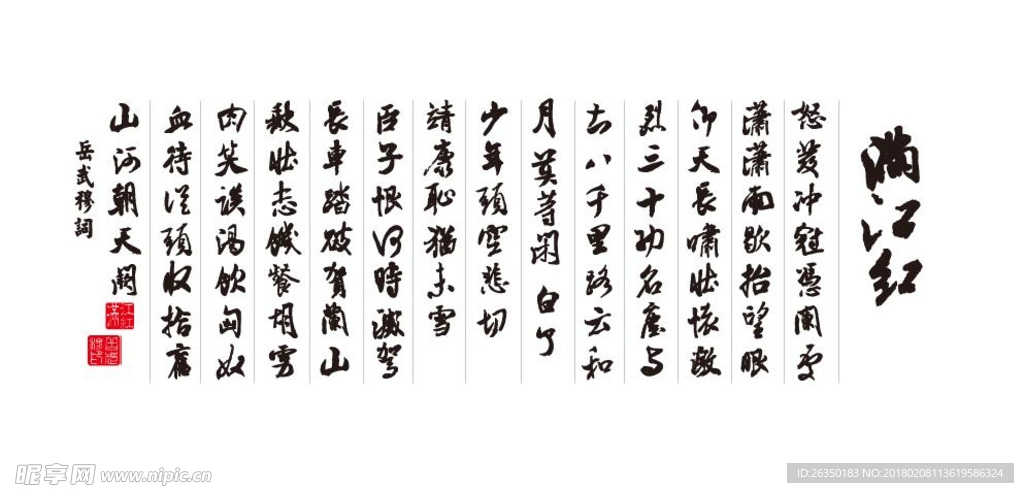 滿江紅
怒发冲冠憑闌處
瀟瀟雨歇抬望眼
仰天長嘯壯懷激
烈三十功名塵与
土八千里路云和
月莫等闲 白了
少年頭空悲切
靖康恥猶未雪
臣子恨何時滅駕
長車踏破賀蘭山
缺壯志饑餐胡虏
肉笑談渴飲匈奴
血待從頭收拾舊
山河朝天闕
岳武穆詞
昵享网 www.nipic.cn
ID:26350183 NO:20180208113619586324